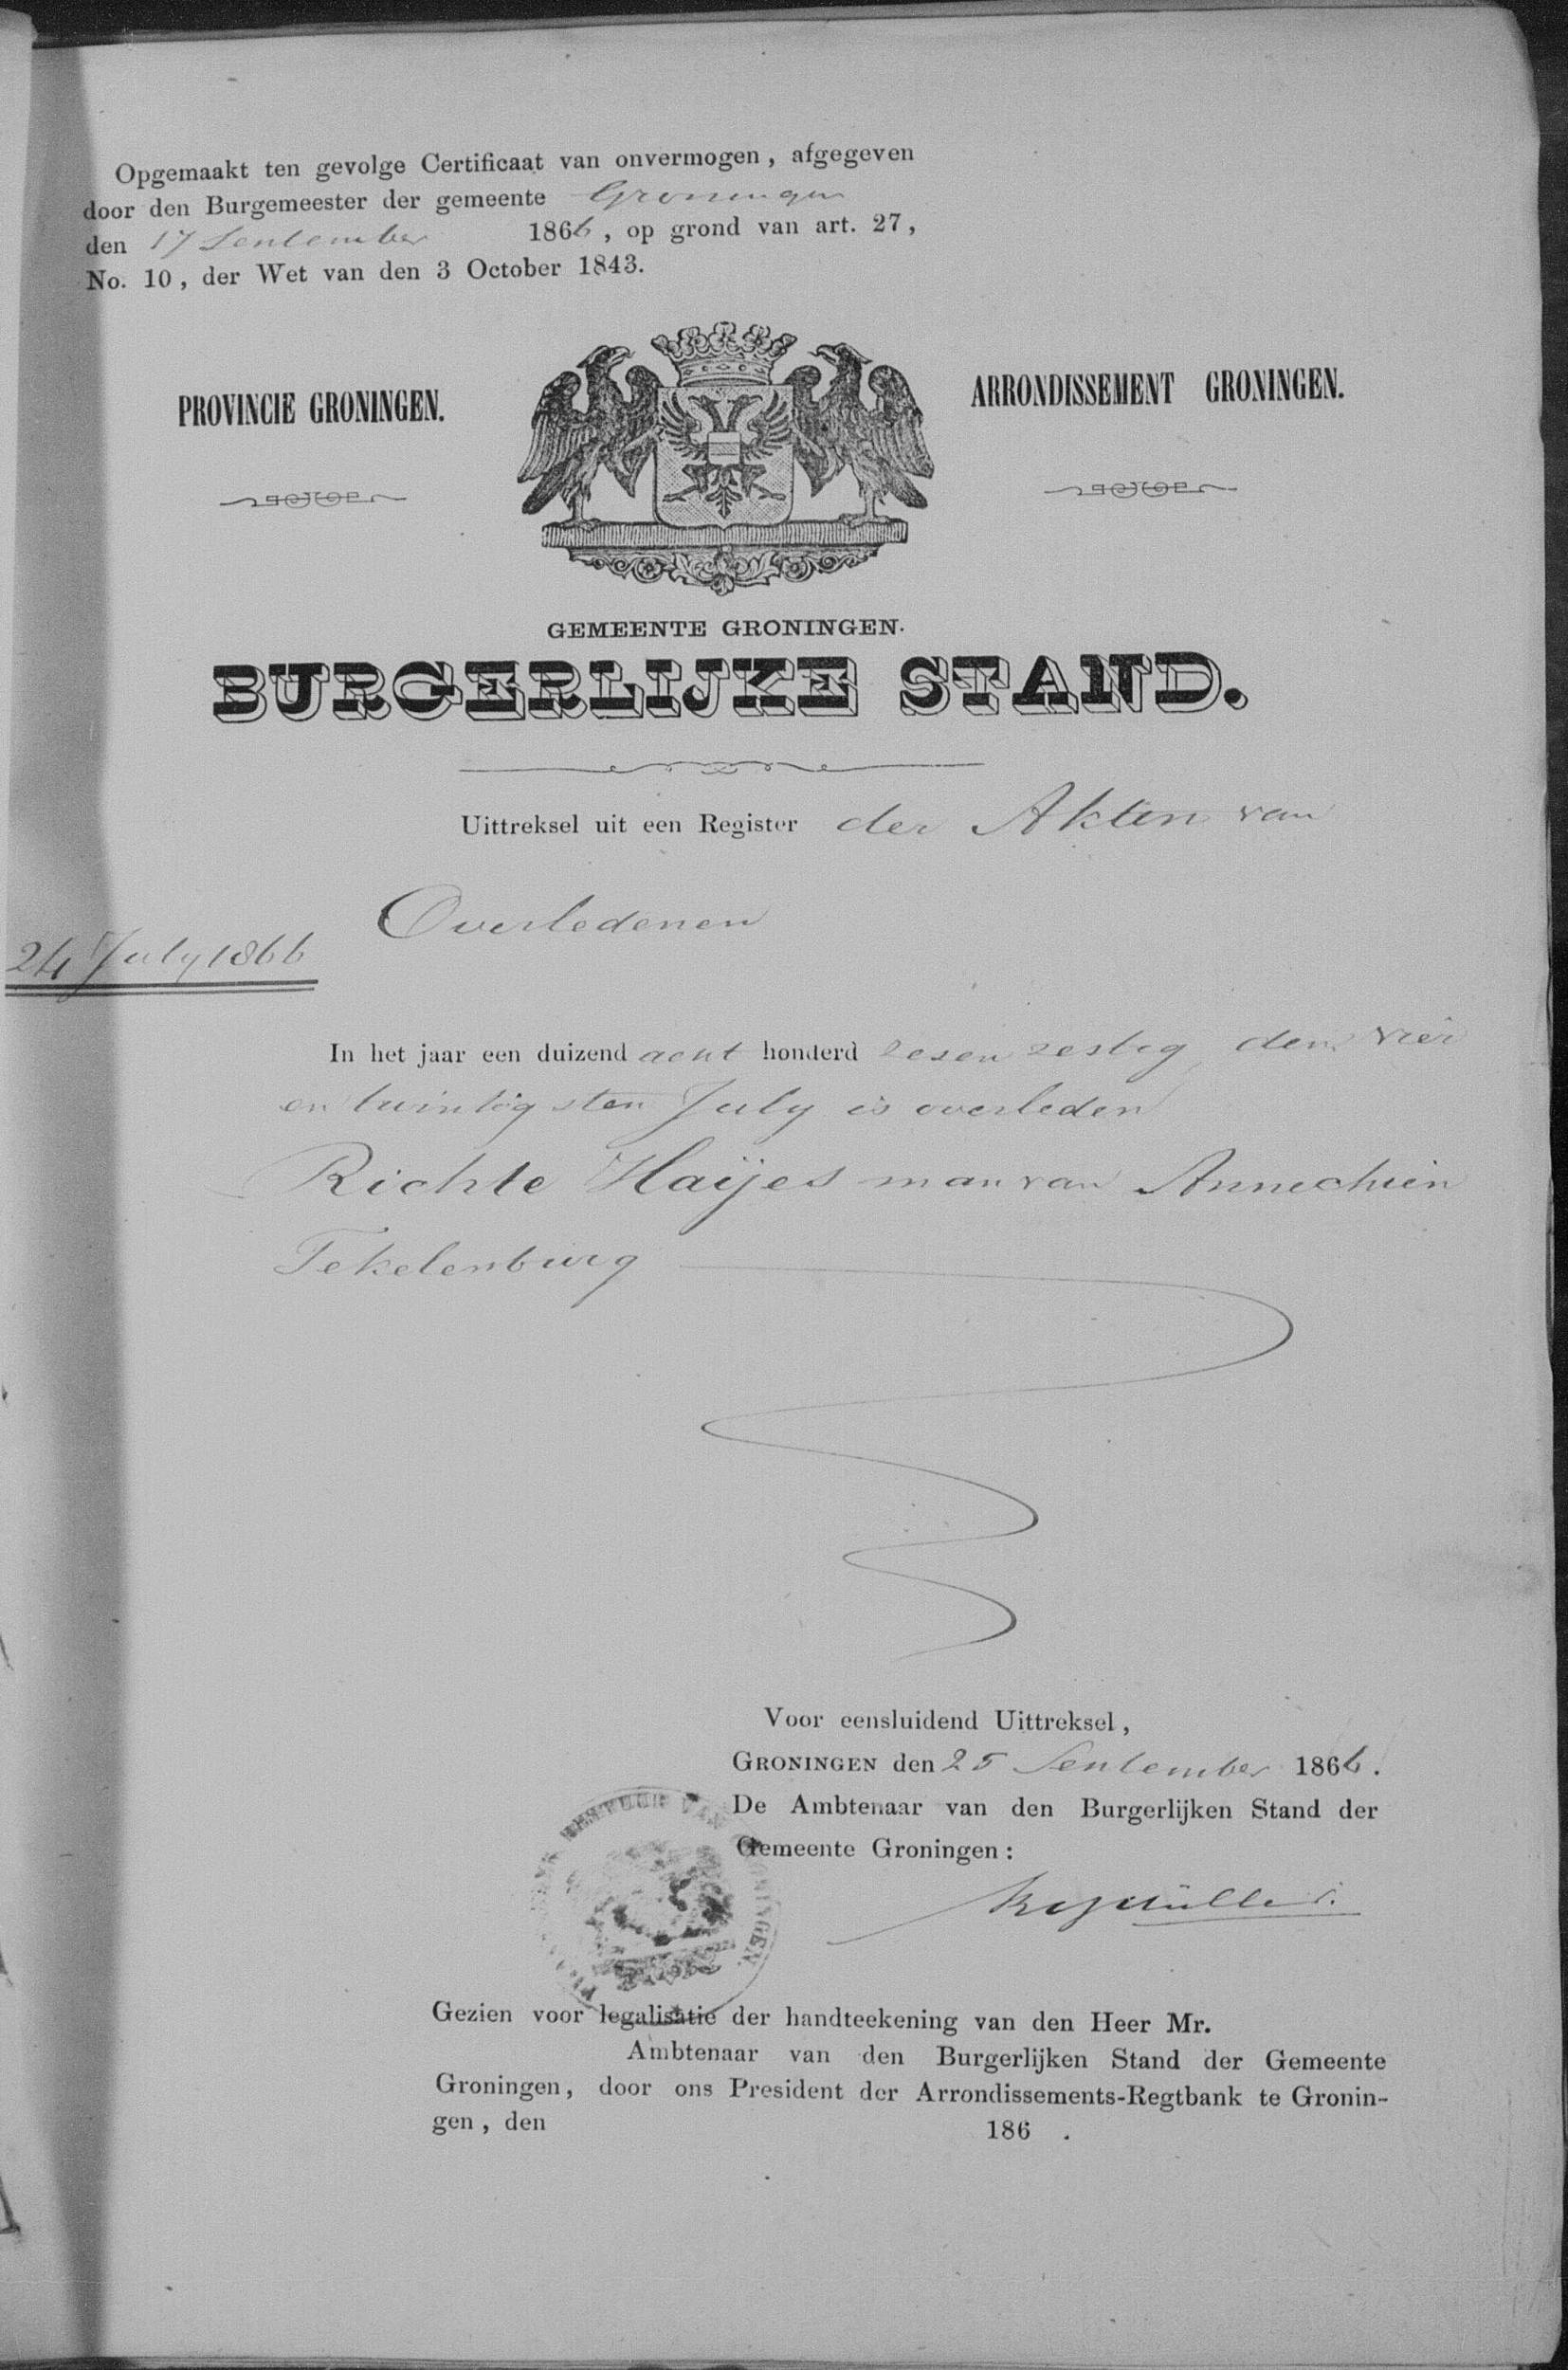 Opgemaakt ten gevolge Certificaat van onvermogen, afgegeven
door den Burgemeester der gemeente Groningen
den 17 September 1866, op grond van art. 27,
No. 10, der Wet van den 3 October 1843.
PROVINCIE GRONINGEN.
ARRONDISSEMENT GRONINGEN.
GEMEENTE GRONINGEN.
BURGERLIJKE STAND.
Uittreksel uit een Register der Akten van
Overledenen
24 July 1866
In het jaar een duizend acht honderd zesen zestig, den vier
en twintigsten July is overleden
Richte Haijes man van Annechien
Tekelenburg
Voor eensluidend Uittreksel,
GRONINGEN den 25 September 1866.
De Ambtenaar van den Burgerlijken Stand der
Gemeente Groningen:
Gezien voor legalisatie der handteekening van den Heer Mr.
Ambtenaar van den Burgerlijken Stand der Gemeente
Groningen, door ons President der Arrondissements-Regtbank te Gronin-
gen, den 186 .